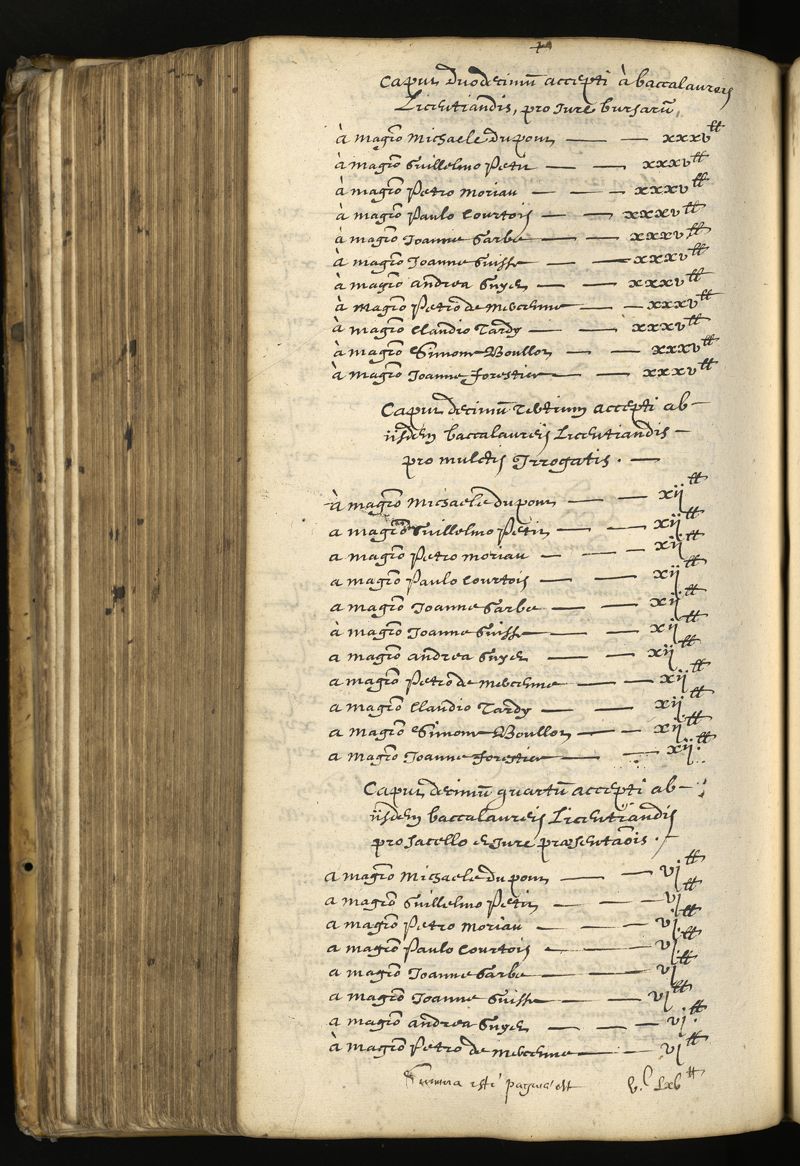 Caput duodecimū accepti à baccalaureis
Licentiandis, pro Jure bursarū,
à magrō Michaele du pont — — xxxv ₶
à magrō Guillelmo Petit — — xxxv ₶
à magrō Petro Moriau — — xxxv ₶
à magrō Paulo Courtois — — xxxv ₶
à magrō Joanne Garbe — — xxxv ₶
à magrō Joanne Guisse — — xxxv ₶
à magrō Andrea Guyet — — xxxv ₶
à magrō Petro de Mescemne — — xxxv ₶
à magrō Claudio Tardy — — xxxv ₶
à magrō Simone Boullot — — xxxv ₶
à magrō Joanne Forestier — — xxxv ₶
Caput decimū tertium accepti ab —
iisdem baccalaureis Licentiandis —
pro mulctis Irrogatis . —
à magrō Michaele du pont — — xij ₶
a magrō Guillelmo Petit — — xij ₶
a magrō Petro Moriau — — xij ₶
a magrō Paulo Courtois — — xij ₶
a magrō Joanne Garbe — — xij ₶
à magrō Joanne Guisse — — xij ₶
a magrō Andrea Guyet — — xij ₶
a magrō Petro de Mescemne — — xij ₶
a magrō Claudio Tardy — — xij ₶
a magrō Simone Boullot — — xij ₶
a magrō Joanne Forestier — — xij ₶
Caput decimū quartū accepti ab —
iisdem baccalaureis Licentiandis
pro sacello et Jure præsentaōis .
a magrō Michaele du pont — — vj ₶
a magrō Guillelmo Petit — — vj ₶
a magrō Petro Moriau — — vj ₶
a magrō Paulo Courtois — — vj ₶
a magrō Joanne Garbe — — vj ₶
a magrō Joanne Guisse — — vj ₶
a magrō Andrea Guyet — — vj ₶
à magrō Petro de Mescemne — — vj ₶
Summa isti' paginæ est v.c lxv ₶